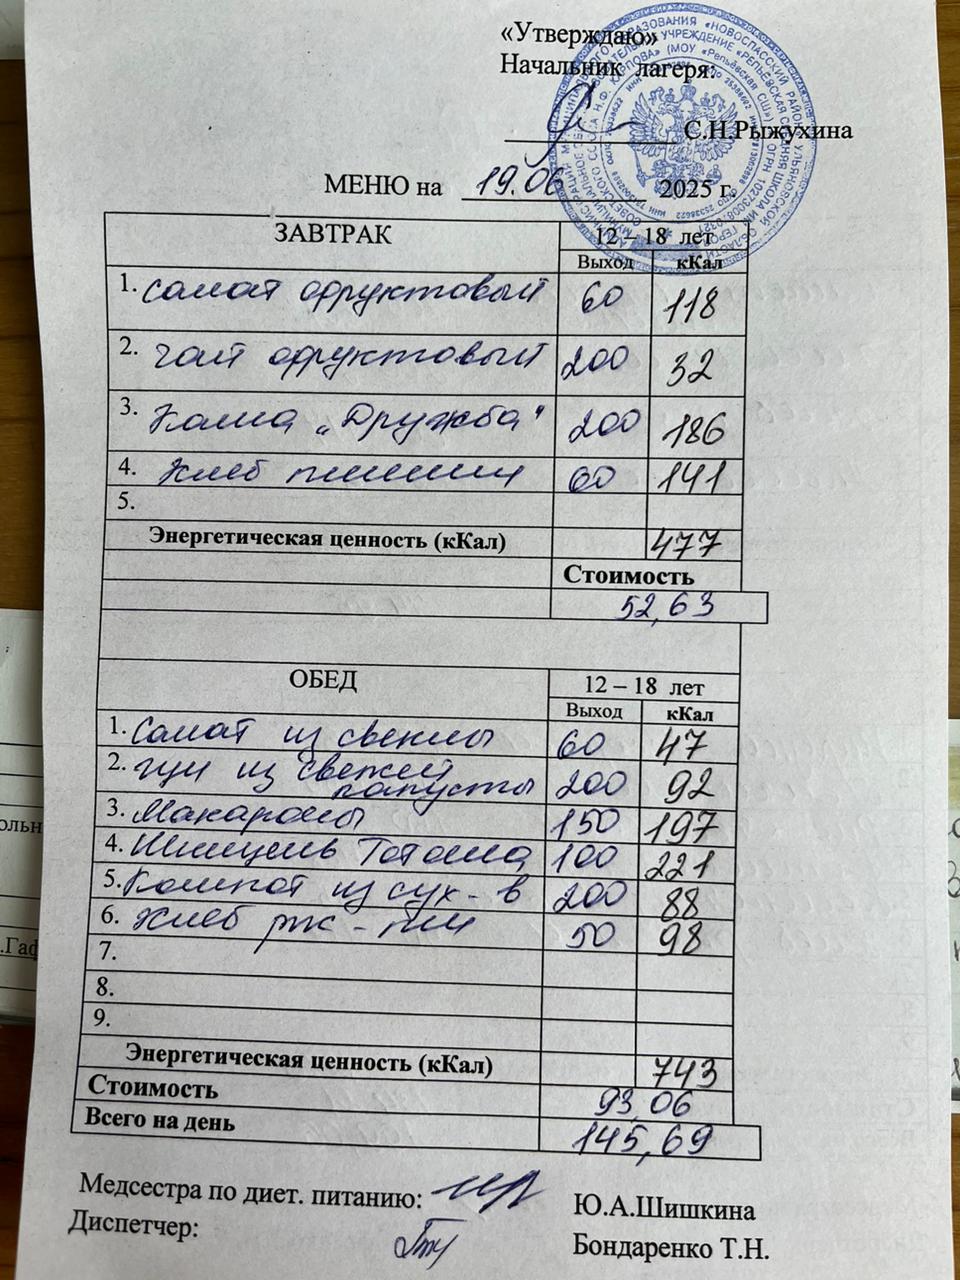 «Утверждаю»
Начальник лагеря:
С.Н.Рыжухина
МЕНЮ на 19.06 2025 г.
ЗАВТРАК 12 – 18 лет
Выход кКал
1. Салат фруктовый 60 118
2. чай фруктовый 200 32
3. Каша „Дружба" 200 186
4. Хлеб пшенич 60 141
5.
Энергетическая ценность (кКал) 477
Стоимость
52,63
ОБЕД 12 – 18 лет
Выход кКал
1. Салат из свеклы 60 47
2. Щи из свежей
капусты 200 92
3. Макароны 150 197
4. Шницель 100 221
5. Компот из сух-в 200 88
6. Хлеб рж-пш 50 98
7.
8.
9.
Энергетическая ценность (кКал) 743
Стоимость 93,06
Всего на день 145,69
Медсестра по диет. питанию: Ю.А.Шишкина
Диспетчер: Бондаренко Т.Н.